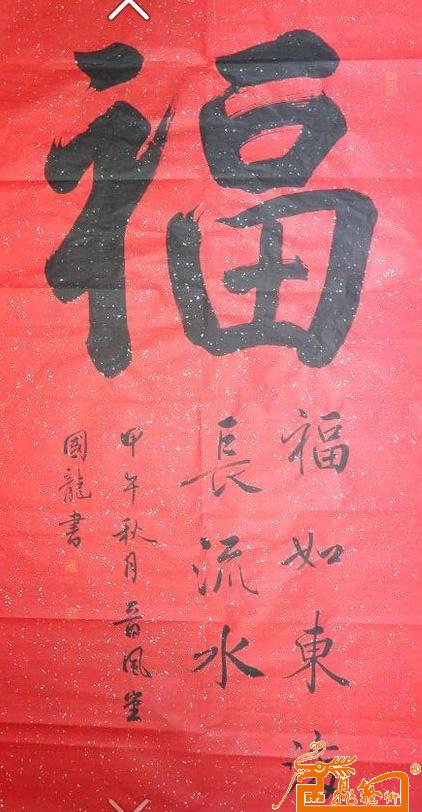 福
福如東海
長流水
甲午秋月晉風堂
國龍書